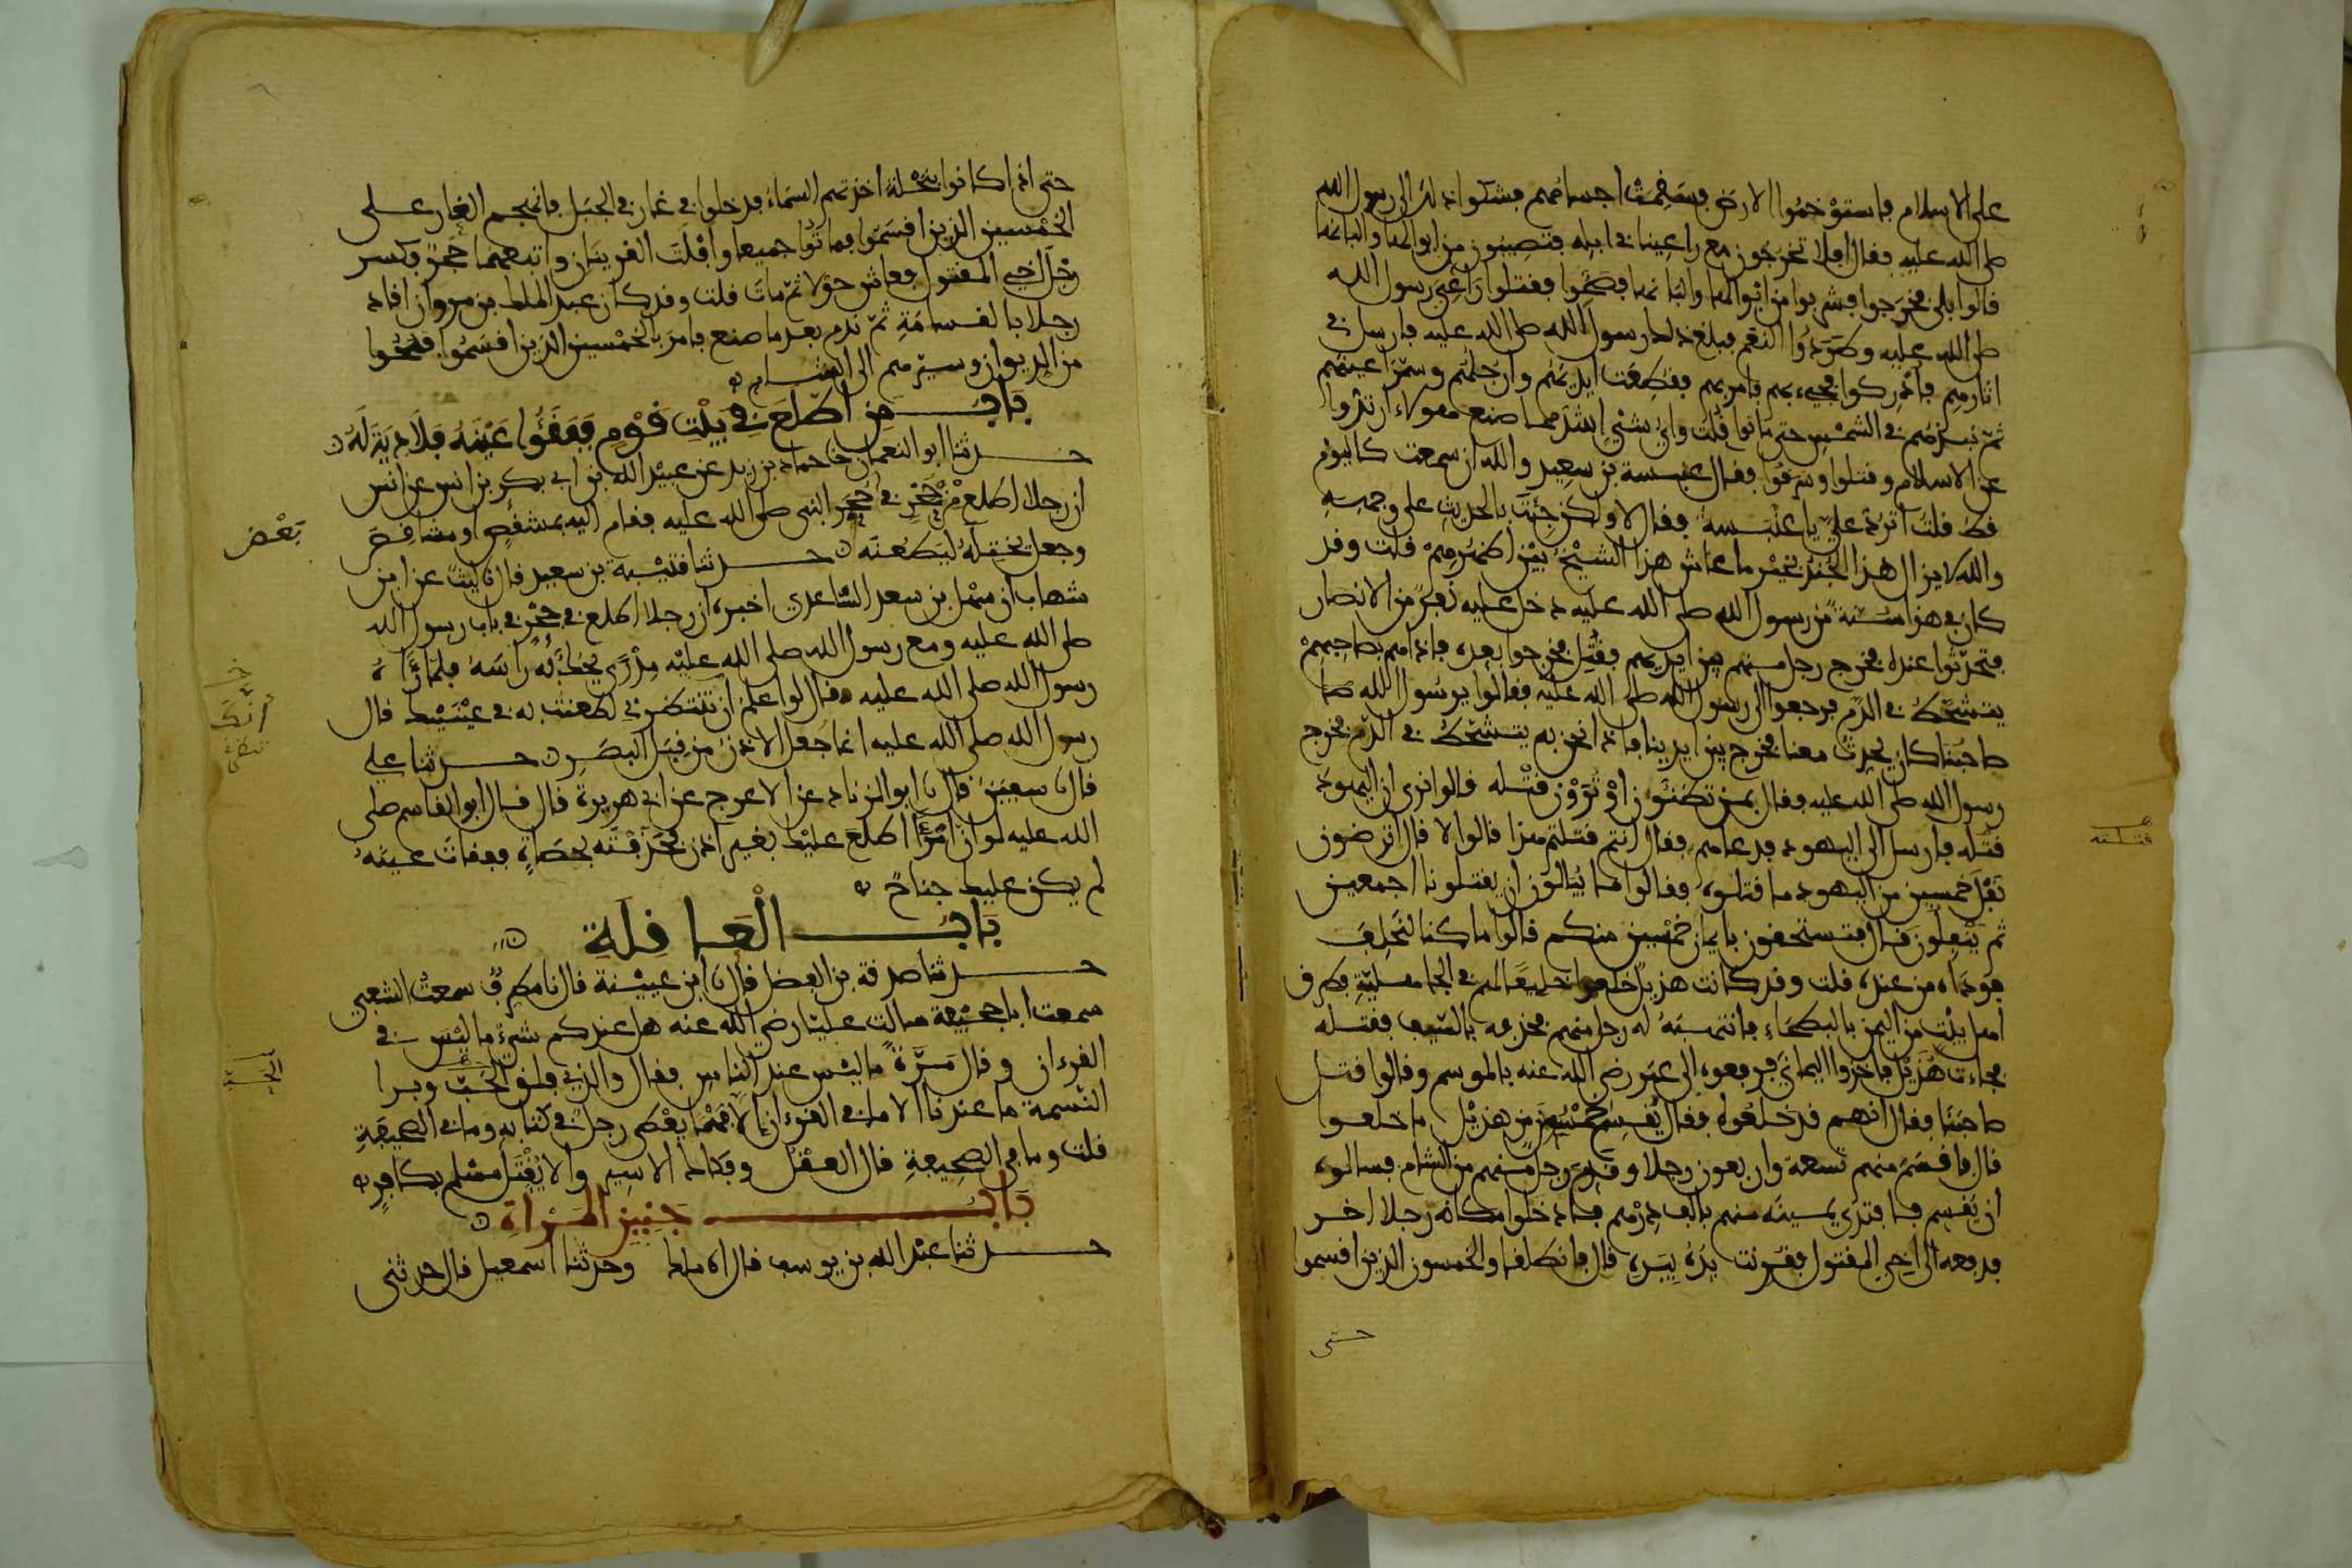 على الاسلام فاستوخموا الارض فسقمت اجسامهم فشكوا ذلك الى رسول الله
صلى الله عليه فقال افلا تخرجون مع راعينا في ابله فتصيبون من ابوالها والبانها
قالوا بلى فخرجوا فشربوا من ابوالها والبانها فصحوا فقتلوا راعي رسول الله
صلى الله عليه وطردوا النعم فبلغ ذلك رسول الله صلى الله عليه فارسل في
اثارهم فادركوا فجيء بهم فامر بهم فقطعت ايديهم وارجلهم وسمر اعينهم
ثم نبذهم في الشمس حتى ماتوا قلت واي شيء اشد مما صنع هؤلاء ارتدوا
عن الاسلام وقتلوا وسرقوا فقال عنبسة بن سعيد والله ان سمعت كاليوم
قط قلت اترد علي يا عنبسة فقال لا ولكن جئت بالحديث على وجهه
والله لا يزال هذا الجند بخير ما عاش هذا الشيخ بين اظهرهم قلت وقد
كان في هذا سنة من رسول الله صلى الله عليه دخل عليه نفر من الانصار
فتحدثوا عنده فخرج رجل منهم بين ايديهم فقتل فخرجوا بعده فاذا هم بصاحبهم
يتشحط في الدم فرجعوا الى رسول الله صلى الله عليه فقالوا يرسول الله
صاحبنا كان يحدث معنا فخرج بين ايدينا فاذا نحن به يتشحط في الدم فخرج
رسول الله صلى الله عليه فقال بمن تظنون او ترون قتله قالوا نرى ان اليهود
قتله فارسل الى اليهود فدعاهم فقال انتم قتلتم هذا قالوا لا قال اترضون
قتلته
نفل خمسين من اليهود ما قتلوه فقالوا ما يبالون ان يقتلونا اجمعين
ثم ينفلون قال فتستحقون بايمان خمسين منكم قالوا ما كنا لنحلف
فوداه من عنده قلت وقد كانت هذيل خلعوا خليعا لهم في الجاهلية فطرق
اهل بيت من اليمن بالبطحاء فانتبه له رجل منهم فحذفه بالسيف فقتله
فجاءت هذيل فاخذوا اليماني فرفعوه الى عمر رضي الله عنه بالموسم وقالوا قتل
صاحبنا فقال انهم قد خلعوه فقال يقسم خمسون من هذيل ما خلعوا
قال فاقسم منهم تسعة واربعون رجلا وقدم رجل منهم من الشام فسالوه
ان يقسم فافتدى يمينه منهم بالف درهم فادخلوا مكانه رجلا اخر
فدفعه الى اخي المقتول فقرنت يده بيده قال فانطلقا والخمسون الذين اقسموا
حتى
حتى اذا كانوا بنخلة اخذتهم السماء فدخلوا في غار في الجبل فانهجم الغار على
الخمسين الذين اقسموا فماتوا جميعا وافلت القرينان واتبعهما حجر فكسر
رجل اخي المقتول فعاش حولا ثم مات قلت وقد كان عبد الملك بن مروان اقاد
رجلا بالقسامة ثم ندم بعد ما صنع فامر بالخمسين الذين اقسموا فمحوا
من الديوان وسيرهم الى الشام
باب من اطلع في بيت قوم ففقئوا عينه فلا دية له
حدثنا ابو النعمان نا حماد بن زيد عن عبيد الله بن ابي بكر بن انس عن انس
ان رجلا اطلع من جحر في حجر النبي صلى الله عليه فقام اليه بمشقص او مشاقص
بعض
وجعل يختله ليطعنه حدثنا قتيبة بن سعيد قال نا ليث عن ابن
شهاب ان سهل بن سعد الساعدي اخبره ان رجلا اطلع في جحر في باب رسول الله
صلى الله عليه ومع رسول الله صلى الله عليه مدرى يحك به راسه فلما رءاه
رسول الله صلى الله عليه قال لو اعلم ان تنتظرني لطعنت به في عينيك قال
انك
رسول الله صلى الله عليه انما جعل الاذن من قبل البصر حدثنا علي
قال نا سفين قال نا ابو الزناد عن الاعرج عن ابي هريرة قال قال ابو القاسم صلى
الله عليه لو ان امرءا اطلع عليك بغير اذن فحذفته بحصاة ففقات عينه
لم يكن عليك جناح
باب العاقلة
حدثنا صدقة بن الفضل قال نا ابن عيينة قال نا مطرف سمعت الشعبي
سمعت ابا جحيفة سالت عليا رضي الله عنه هل عندكم شيء ما ليس في
القرءان وقال مرة ما ليس عند الناس فقال والذي فلق الحب وبرا
الحبة
النسمة ما عندنا الا ما في القرءان الا فهما يعطى رجل في كتابه وما في الصحيفة
قلت وما في الصحيفة قال العقل وفكاك الاسير والا يقتل مسلم بكافر
باب جنين المراة
حدثنا عبد الله بن يوسف قال انا ملك وحدثنا اسمعيل قال حدثني